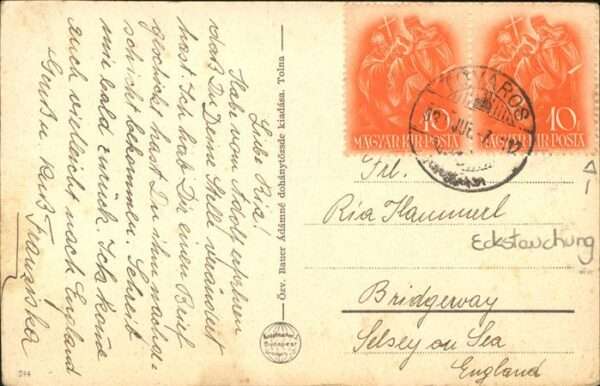 Liebe Ria!
Habe vom Adolf erfahren
daß Du Deine Stelle verändert
hast. Ich hab Dir einen Brief
geschickt hast Du ihm nachge-
schickt bekommen. Schreib
mir bald zurück. Ich komme
auch vielleicht nach England
Gruß u. Kuß Franziska
Özv. Bauer Ádámné dohánytőzsde kiadása. Tolna
10 10
MAGYAR KIR POSTA MAGYAR KIR POSTA
Frl.
Ria Hammerl
Eckstauchung
Bridgeway
Selsey on Sea
England